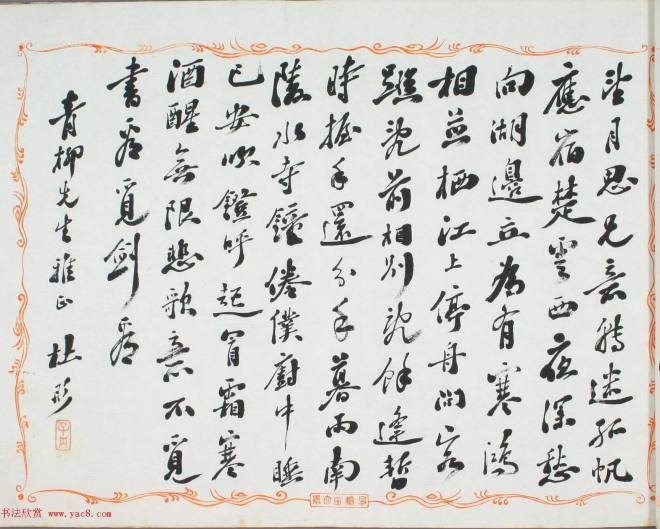 望月思兄意轉迷孤帆
應宿楚雲西夜深愁
向湖邊立為有寒鴻
相並栖江上停舟問客
蹤亂前相別亂餘逢暫
時握手還分手暮雨南
陵水寺鐘倦僕廚中睡
已安吹燈呼起冒霜寒
酒醒無限悲歌意不覓
書看覓劍看
青柳先生雅正 杜彤
书法欣赏 www.yac8.com